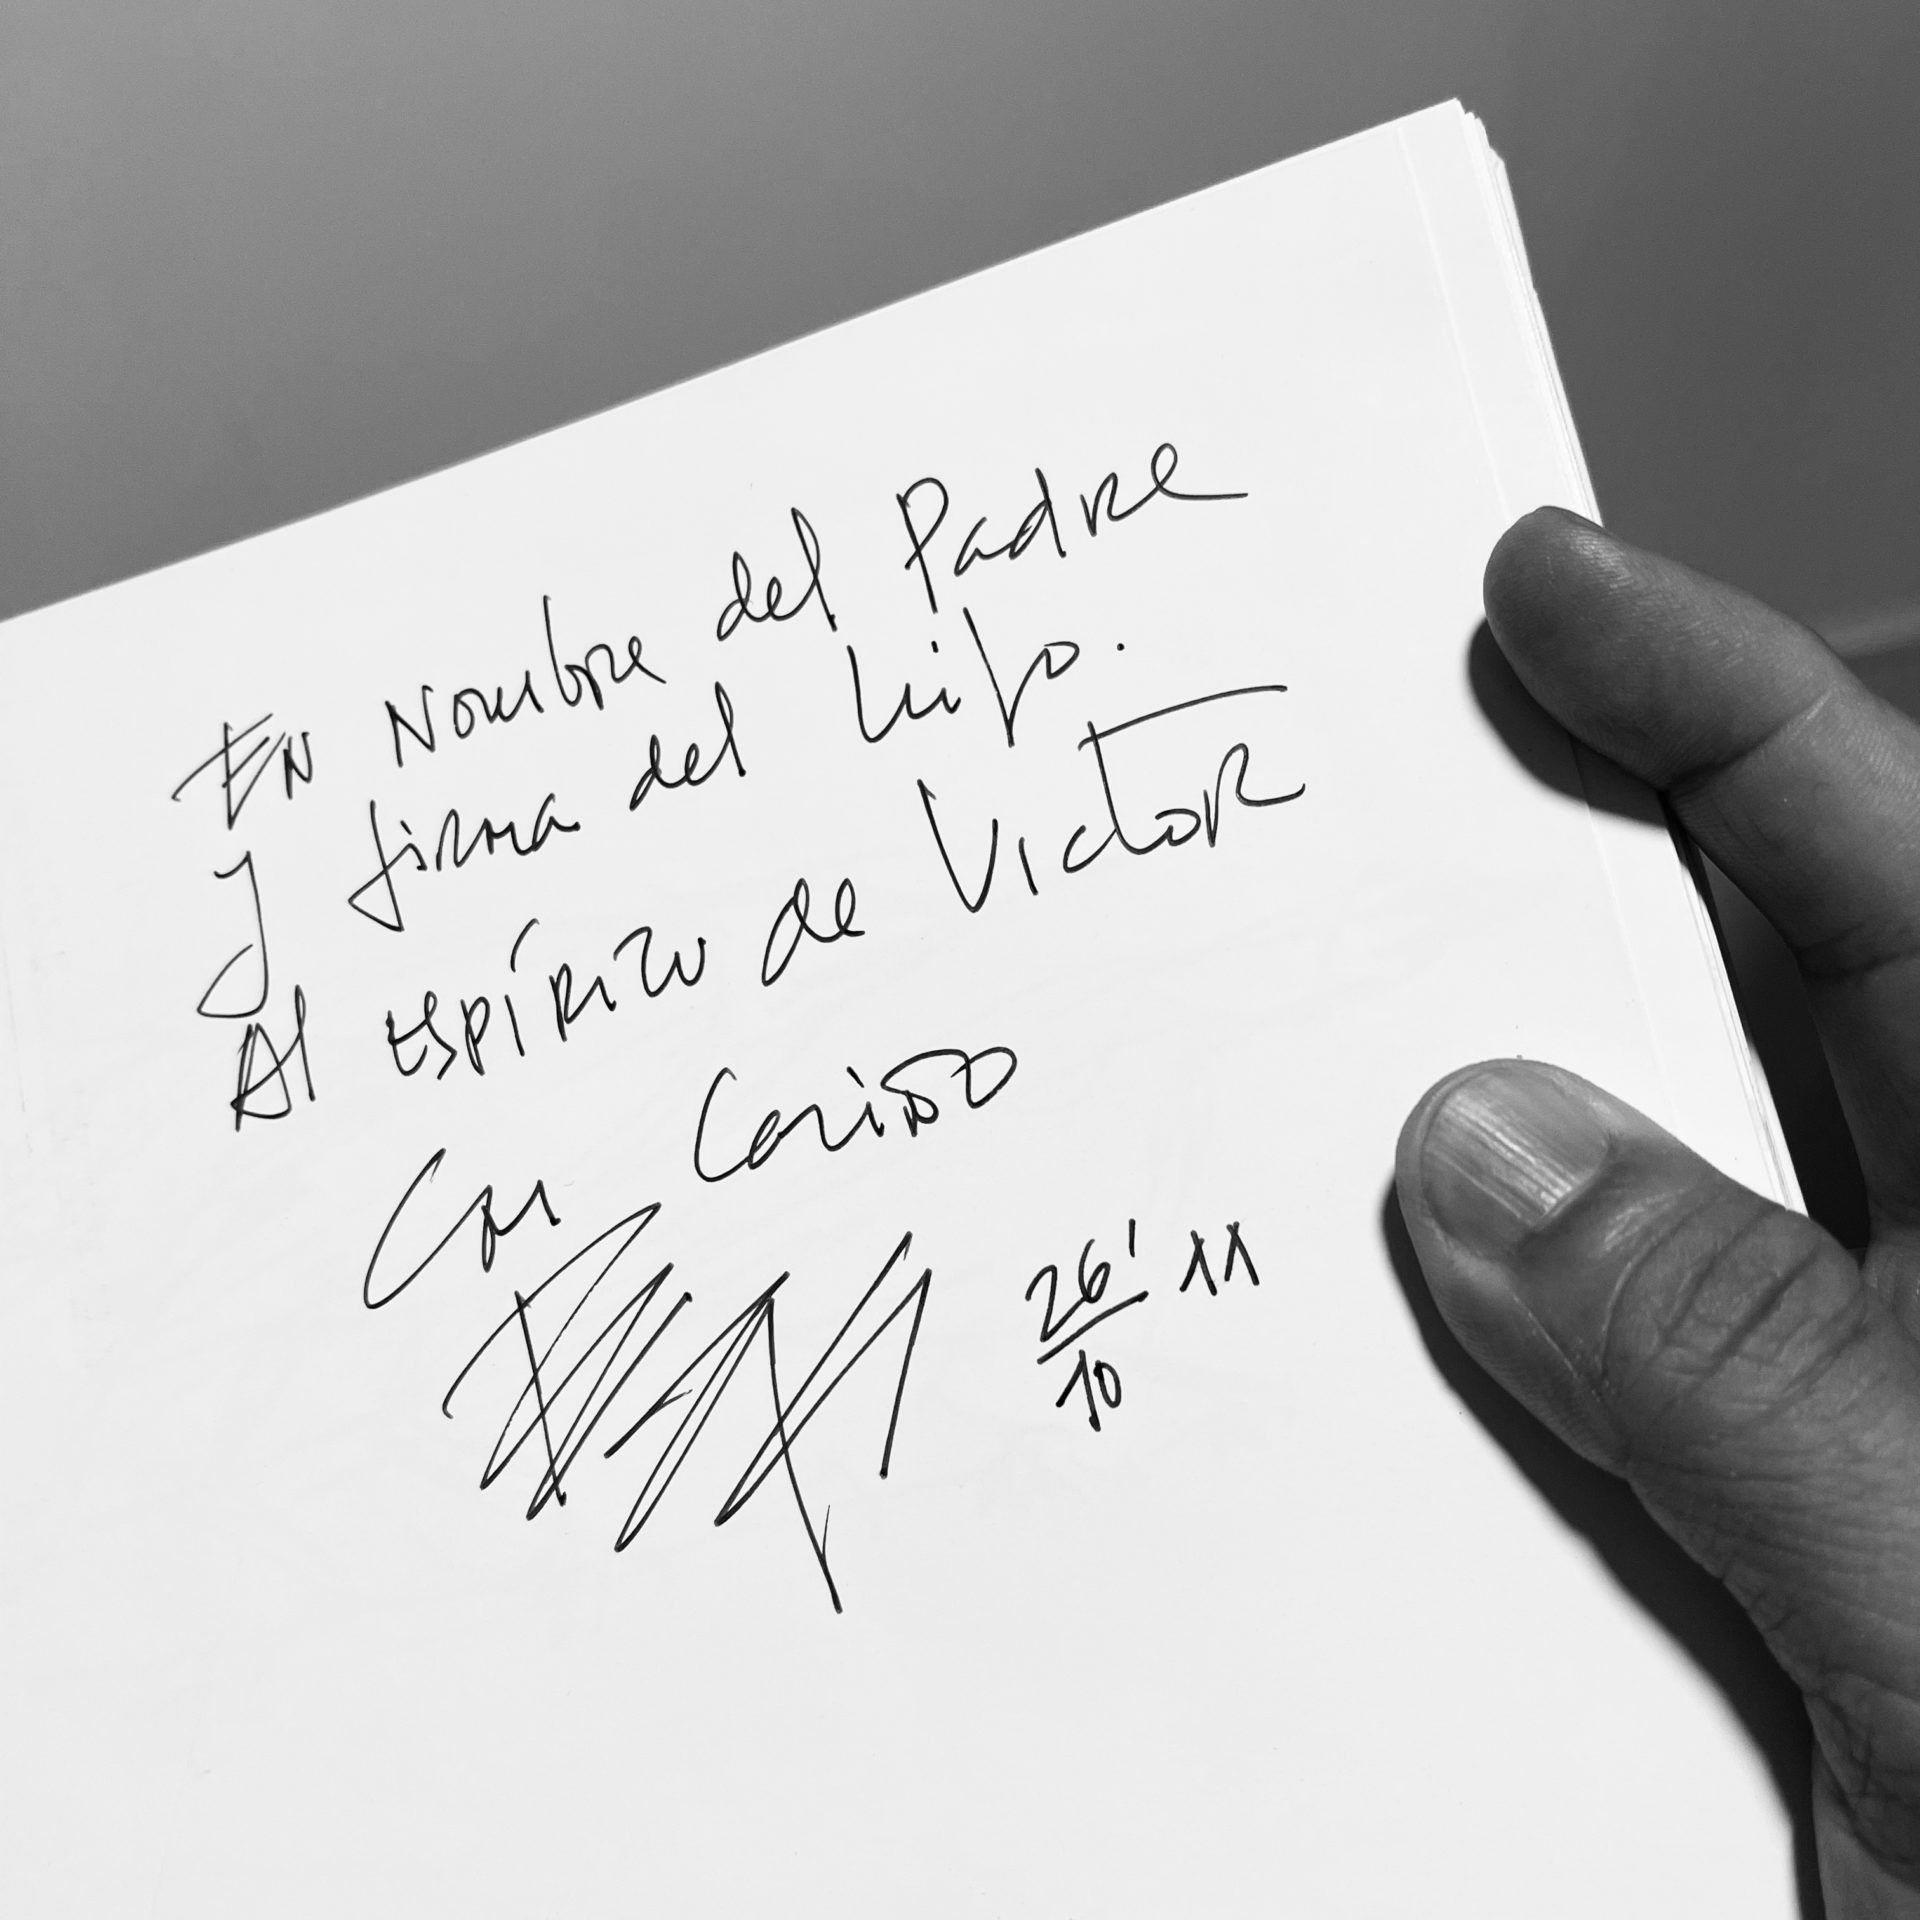 En Nombre del Padre
y firma del hijo.
Al espíritu de Victor
Con Cariño
26' 11
10